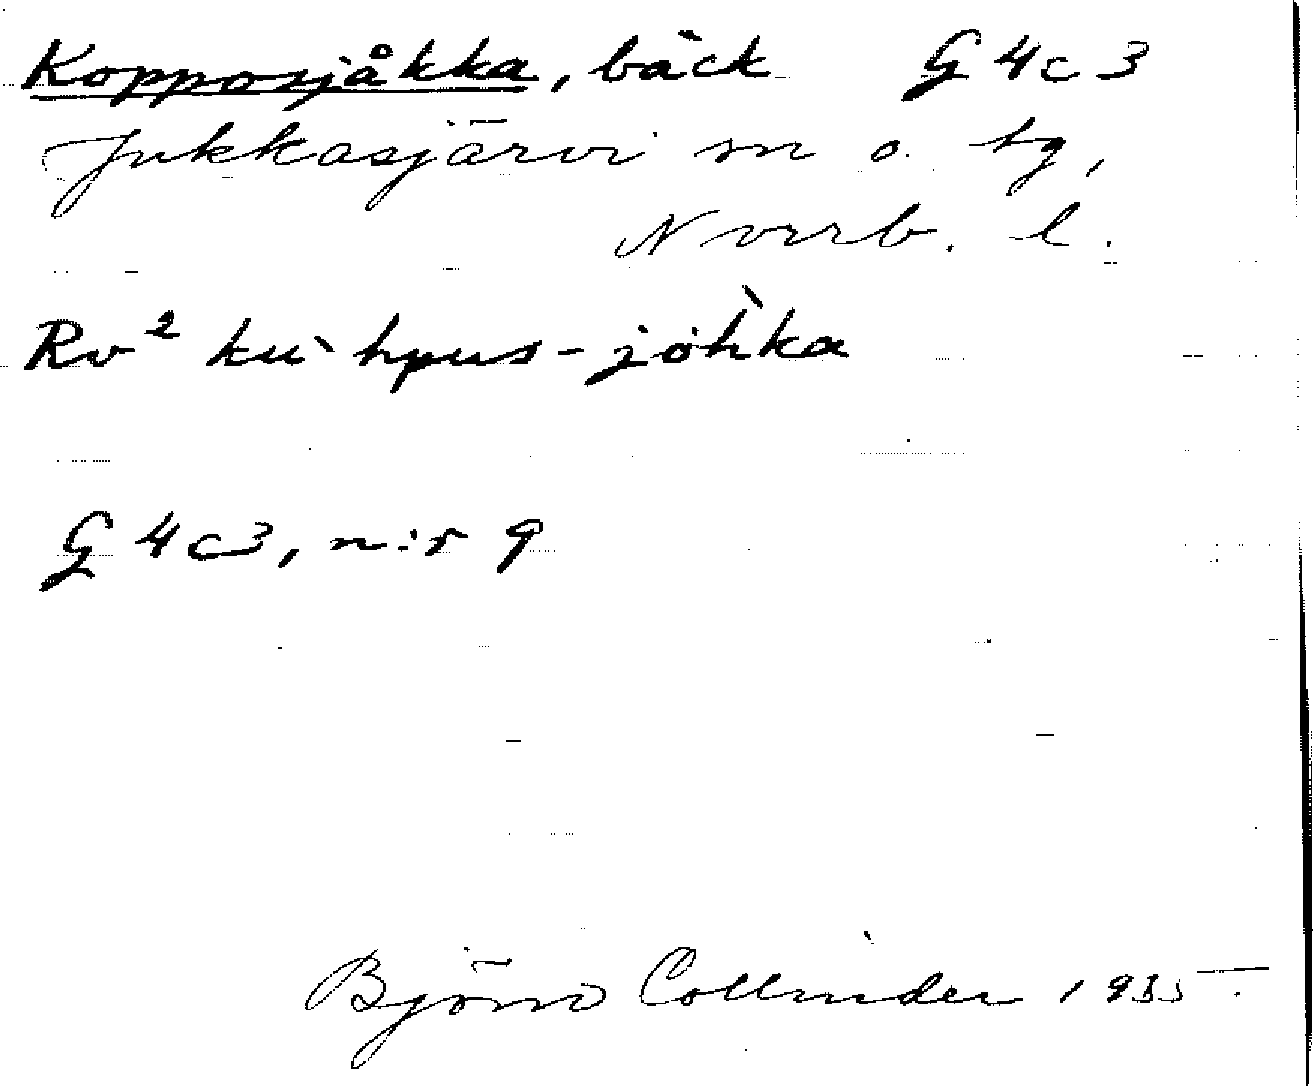 Kopposjåkka, bäck G 4 c 3
Jukkasjärvi sn o. tg,
Norrb. l.
Rv² ku`hpus-jòhka
G 4 c 3, n:r 9
Björn Collinder 1935.